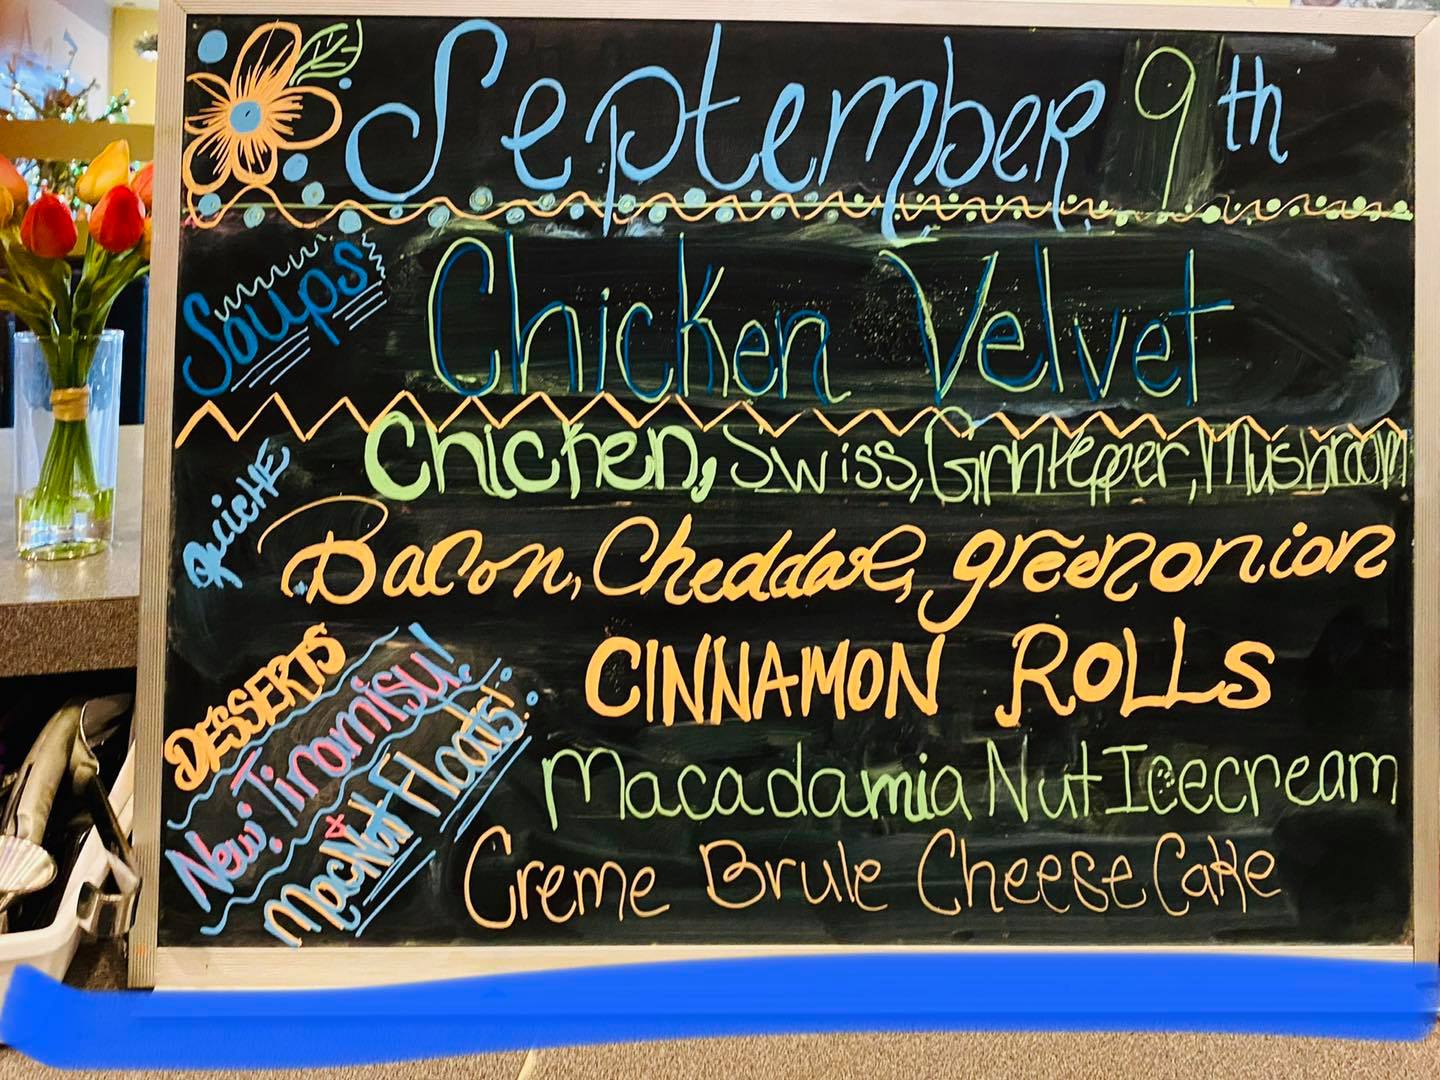 September 9th
Soups
Chicken Velvet
Quiche
Chicken, Swiss, Grn Pepper, Mushroom
Bacon, Cheddar, green onion
DESSERTS
CINNAMON ROLLS
New! Tiramisu!
Macadamia Nut Icecream
& MacNut Floats!
Creme Brule Cheese Cake